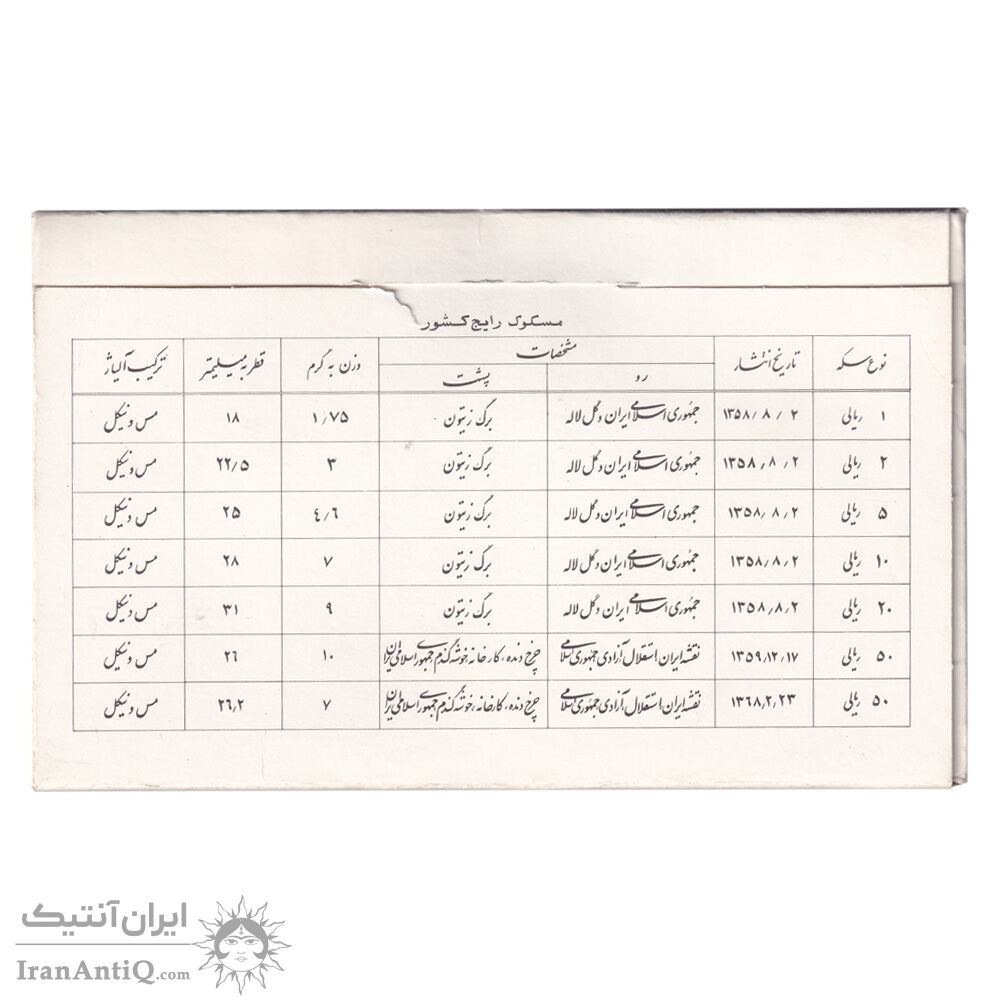 مسکوک رایج کشور
نوع سکه تاریخ انتشار مشخصات وزن به گرم قطر به میلیمتر ترکیب آلیاژ
رو پشت
۱ ریالی ۱۳۵۸/۸/۲ جمهوری اسلامی ایران و گل لاله برگ زیتون ۱/۷۵ ۱۸ مس و نیکل
۲ ریالی ۱۳۵۸/۸/۲ جمهوری اسلامی ایران و گل لاله برگ زیتون ۳ ۲۲/۵ مس و نیکل
۵ ریالی ۱۳۵۸/۸/۲ جمهوری اسلامی ایران و گل لاله برگ زیتون ٤/٦ ۲۵ مس و نیکل
۱۰ ریالی ۱۳۵۸/۸/۲ جمهوری اسلامی ایران و گل لاله برگ زیتون ۷ ۲۸ مس و نیکل
۲۰ ریالی ۱۳۵۸/۸/۲ جمهوری اسلامی ایران و گل لاله برگ زیتون ۹ ۳۱ مس و نیکل
۵۰ ریالی ۱۳۵۹/۱۲/۱۷ نقشه ایران استقلال آزادی جمهوری اسلامی چرخ دنده، کارخانه خوشه گندم جمهوری اسلامی ایران ۱۰ ۲٦ مس و نیکل
۵۰ ریالی ۱۳٦۸/۲/۲۳ نقشه ایران استقلال آزادی جمهوری اسلامی چرخ دنده، کارخانه، خوشه گندم جمهوری اسلامی ایران ۷ ۲٦/۲ مس و نیکل
ایران آنتیک
IranAntiQ.com